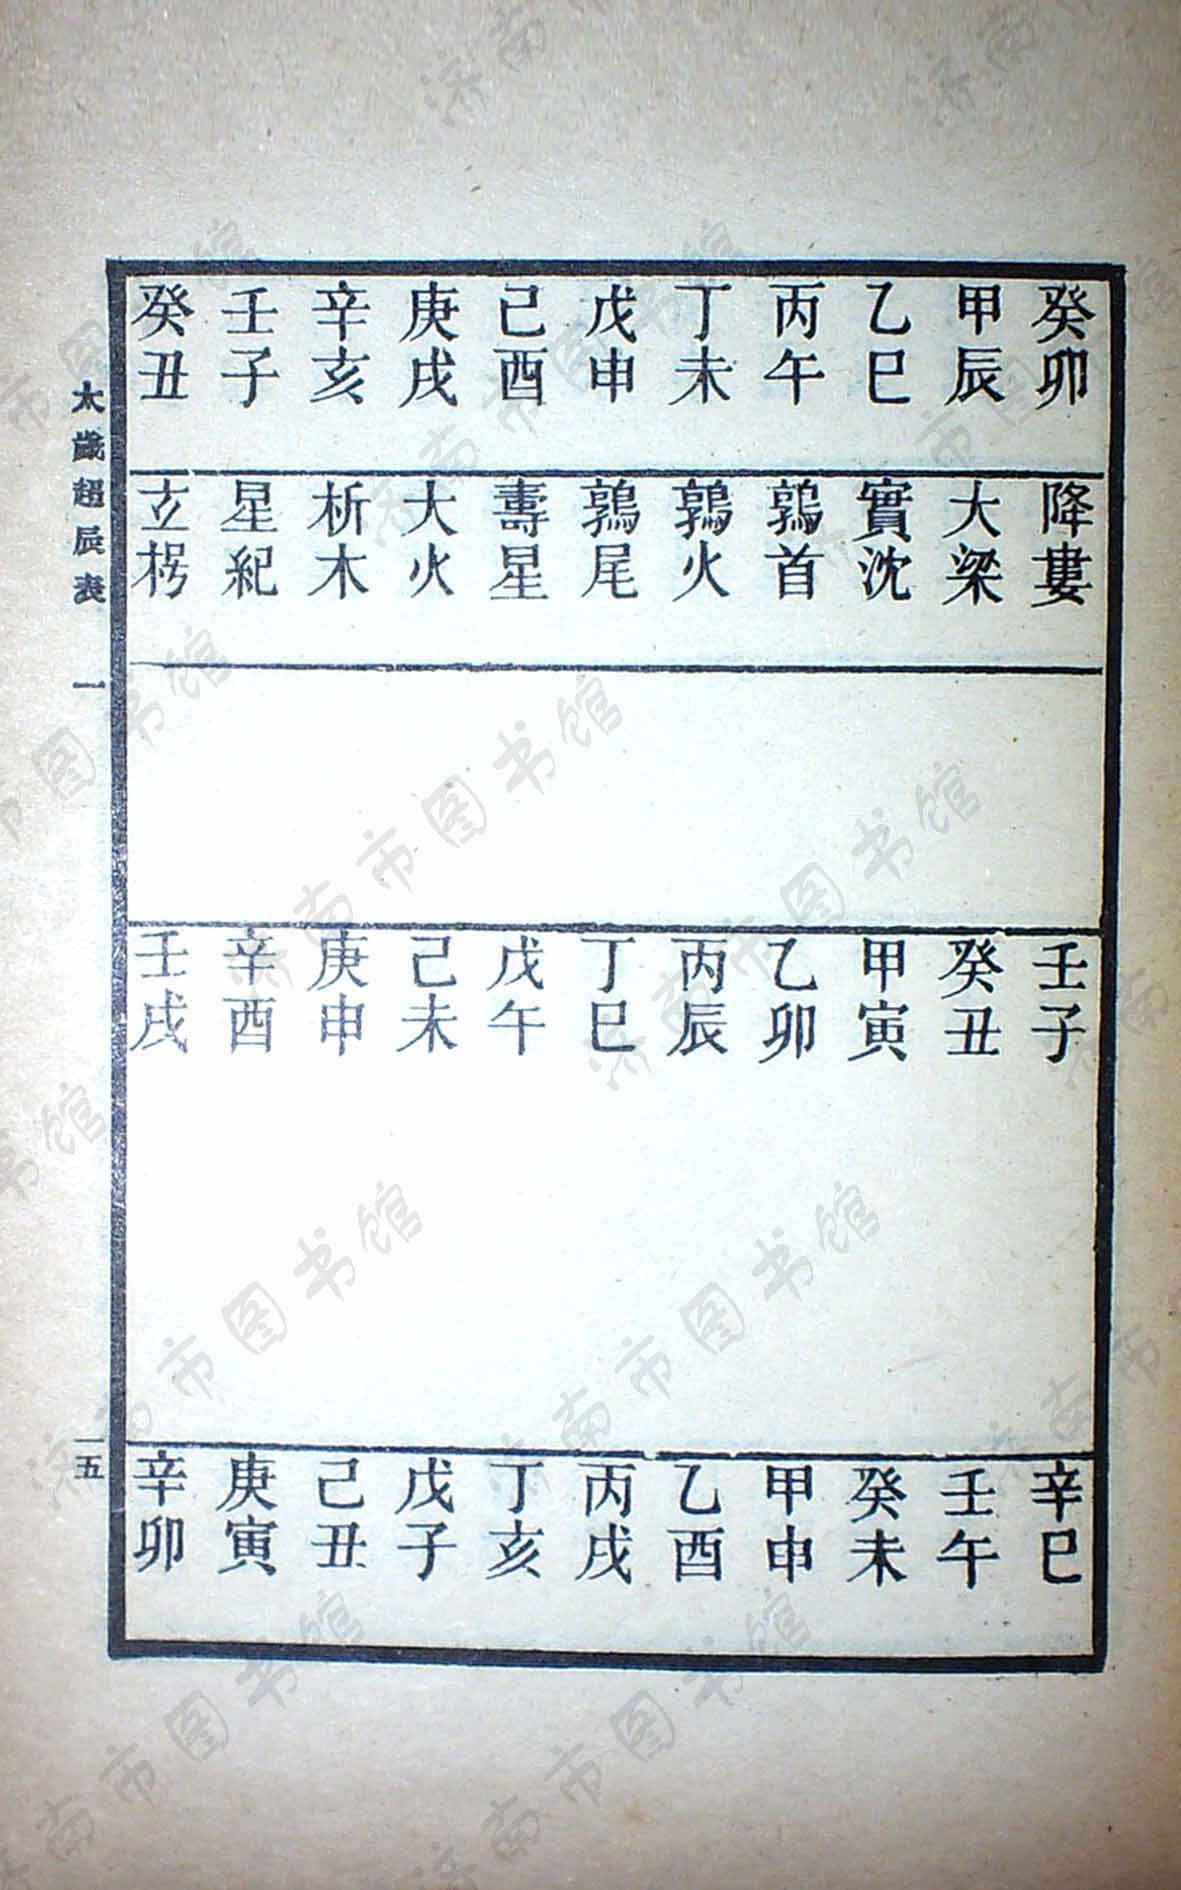 癸卯 降婁 壬子 辛巳
甲辰 大梁 癸丑 壬午
乙巳 實沈 甲寅 癸未
丙午 鶉首 乙卯 甲申
丁未 鶉火 丙辰 乙酉
戊申 鶉尾 丁巳 丙戌
己酉 壽星 戊午 丁亥
庚戌 大火 己未 戊子
辛亥 析木 庚申 己丑
壬子 星紀 辛酉 庚寅
癸丑 玄枵 壬戌 辛卯
太歲超辰表 一 一五
济南市图书馆